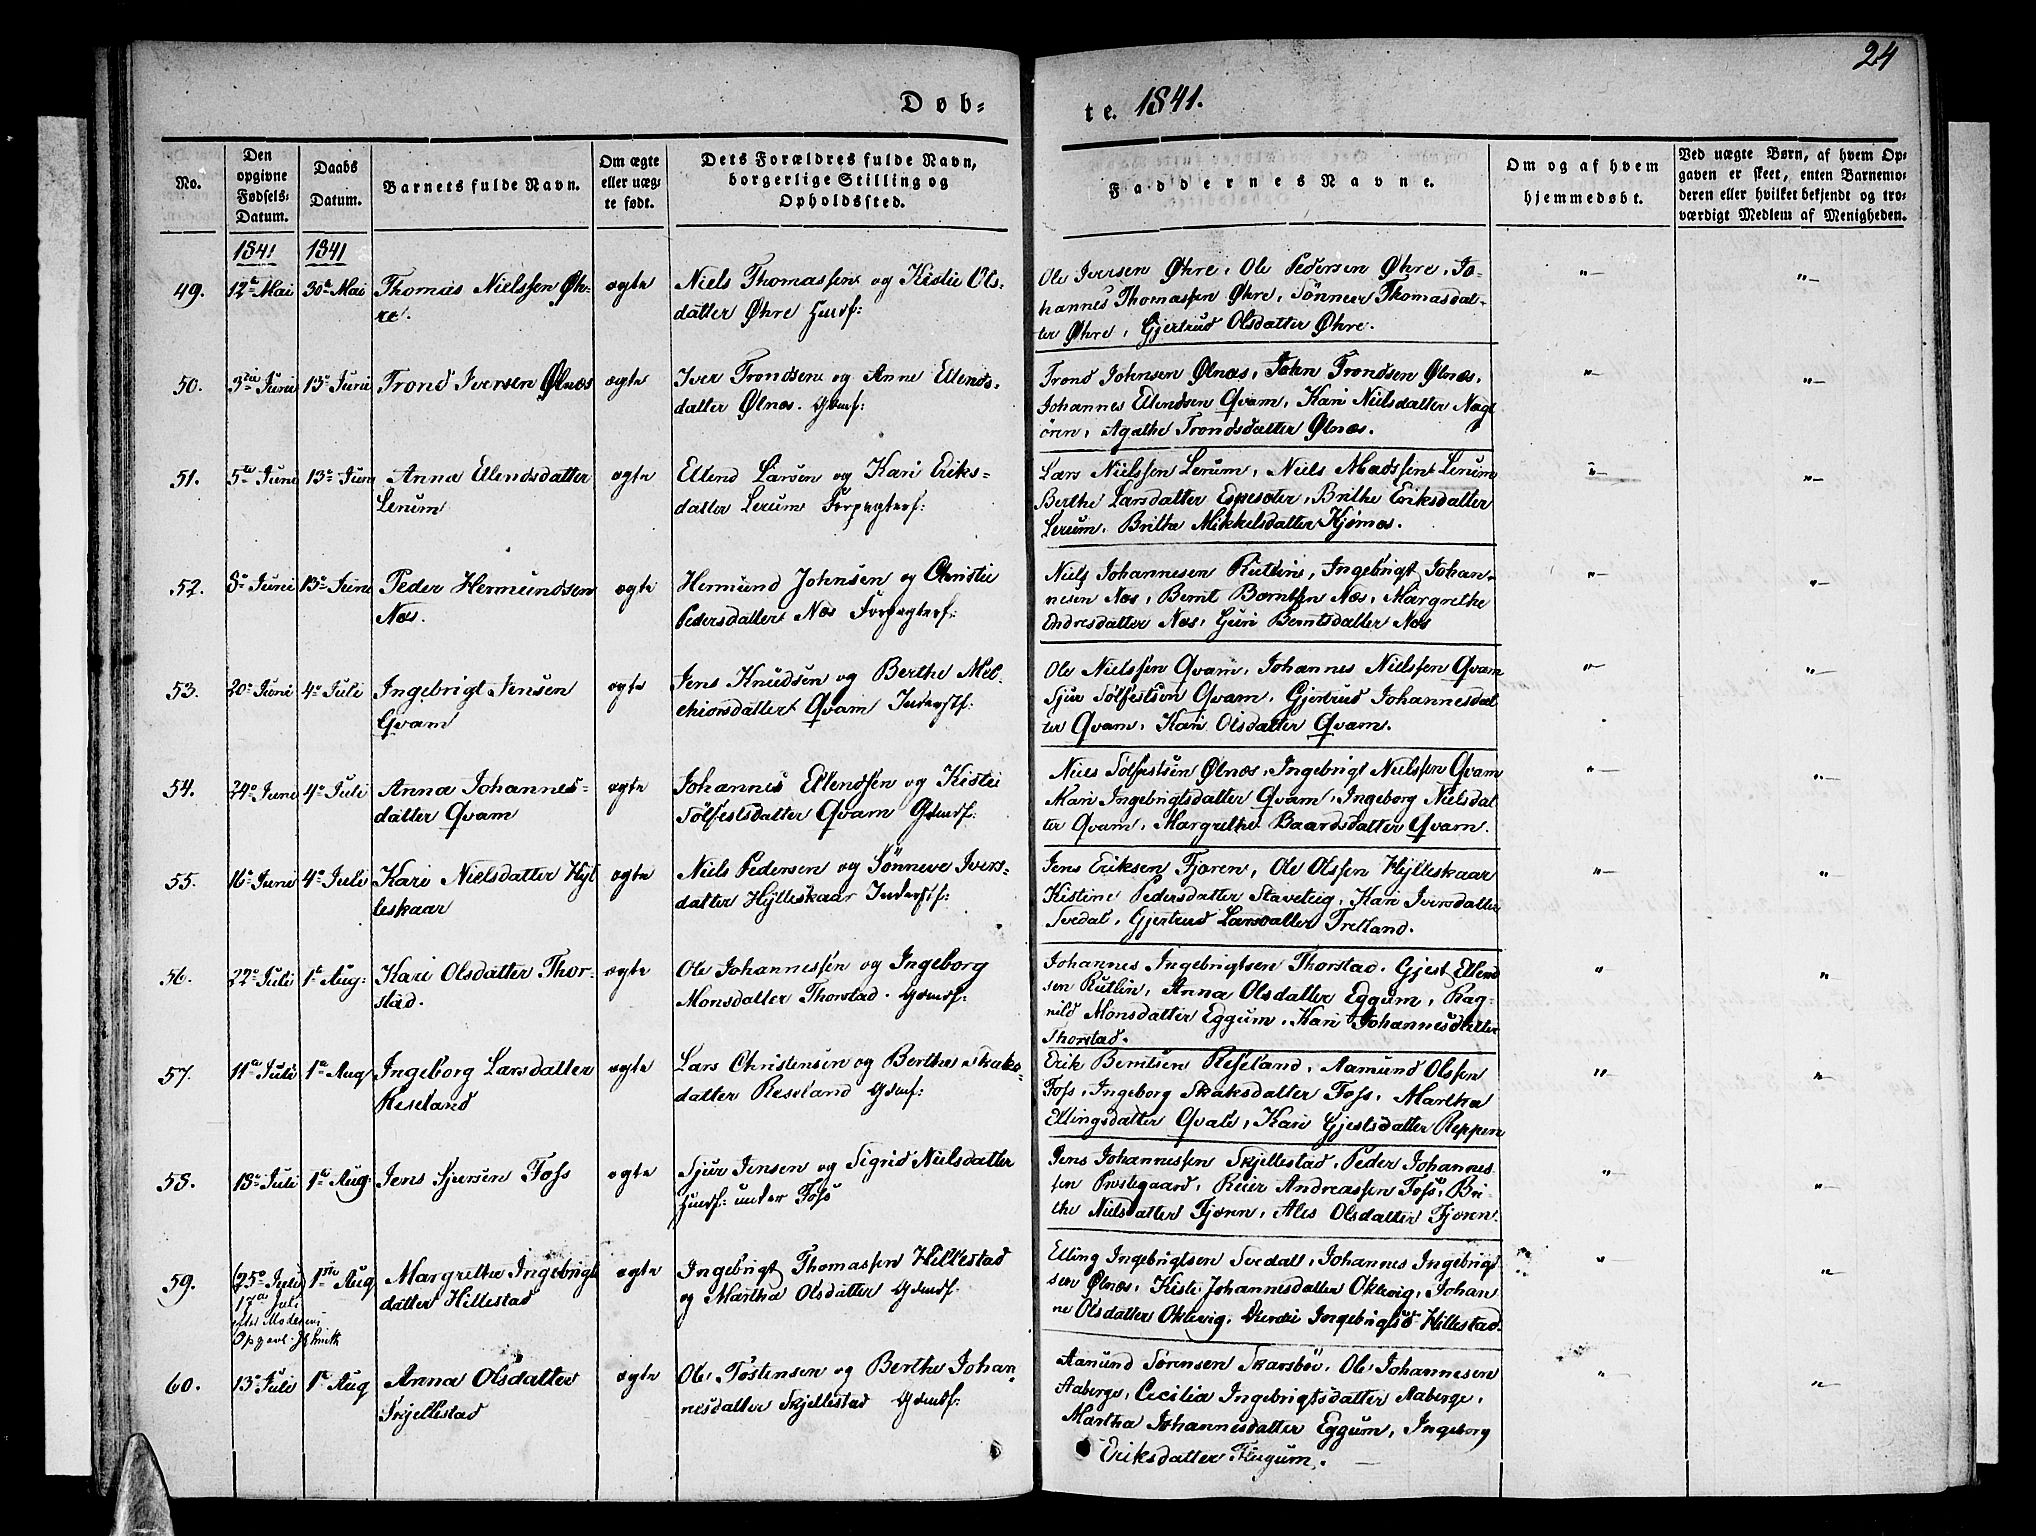 24
Døb-
te. 1841.
No.
Den
opgivne
Fødsels-
Datum.
Daabs
Datum.
Barnets fulde Navn.
Om ægte
eller uæg-
te født.
Dets Forældres fulde Navn,
borgerlige Stilling og
Opholdssted.
Faddernes Navne.
Om og af hvem
hjemmedøbt.
Ved uægte Børn, af hvem Op-
gaven er skeet, enten Barnemo-
deren eller hvilket bekjendt og tro-
værdigt Medlem af Menigheden.
1841 1841
49. 12te Mai 30te Mai Thomas Nielssen Øh-
re.
ægte
Niels Thomassen og Kistie Ols-
datter Øhre Huusf:
Ole Iversen Øhre, Ole Pedersen Øhre, Jo-
hannes Thomassen Øhre, Sönneve Thomasdat-
ter Øhre, Gjertrud Olsdatter Øhre.
50. 3die Juni 13e Juni Trond Iversen Ølnæs
ægte
Iver Trondsen og Anne Ellends-
datter Ølnæs. Gdmf:
Trond Johnsen Ølnæs, John Trondsen Ølnæs,
Johannes Ellendsen Qvam, Kari Nielsdatter Nagl
ören, Agathe Trondsdatter Ølnæs.
51. 5te Juni 13e Juni Anna Ellendsdatter
Lerum
ægte
Ellend Larsen og Kari Eriks-
datter Lerum Forpagterf:
Lars Nielssen Lerum, Niels Madssen Lerum
Berthe Larsdatter Espesæter, Brithe Eriksdatter
Lerum, Brithe Mikkelsdatter Kjørnæs.
52. 8e Juni 13e Juni Peder Hermundsen
Næs.
ægte
Hermund Johnsen og Christie
Pedersdatter Næs Forpagterf:
Niels Johannesen Rutlin, Ingebrigt Johan-
nesen Næs, Bernt Berntsen Næs, Margrethe
Endresdatter Næs, Guri Berntsdatter Næs
53. 20e Juni 4e Juli Ingebrigt Jensen
Qvam
ægte
Jens Knudsen og Berthe Mel-
chiorsdatter Qvam Inderstf:
Ole Nielssen Qvam, Johannes Nielssen Qvam
Sjur Sølfestsen Qvam, Gjertrud Johannesdat
ter Qvam, Kari Olsdatter Qvam.
54. 24e Juni 4e Juli Anna Johannes-
datter Qvam
ægte
Johannes Ellendsen og Kistie
Sölfestsdatter Qvam Gdmdf:
Niels Sölfestsen Ølnæs, Ingebrigt Nielssen Qvam
Mari Ingebrigtsdatter Qvam, Ingeborg Nielsdat
ter Qvam, Margrethe Baardsdatter Qvam.
55. 16e Juni 4e Juli Kari Nielsdatter Hyl
leskaar
ægte
Niels Pedersen og Sönneve Ivers-
datter Hylleskaar Inderstf:
Jens Eriksen Fjæren, Ole Olssen Hylleskaar
Kistine Pedersdatter Staveteig, Kari Iversdatter
Svedal, Gjertrud Larsdatter Fretland.
56. 22e Juli 1e Aug: Kari Olsdatter Thor-
stad.
ægte
Ole Johannessen og Ingeborg
Monsdatter Thorstad. Gdmdf:
Johannes Ingebrigtsen Thorstad, Gjest Ellend
sen Rutlin, Anna Olsdatter Eggum, Rag-
nild Monsdatter Eggum, Kari Johannesdatter
Thorstad.
57. 11e Juli 1e Aug Ingeborg Larsdatter
Reseland
ægte
Lars Christensen og Berthe Skaks-
datter Reseland Gdmf:
Erik Berntsen Reseland, Aamund Olssen
Foss, Ingeborg Skaksdatter Foss, Martha
Ellingsdatter Qvale, Kari Gjestsdatter Reppen
58. 18e Juli 1e Aug: Jens Sjursen Foss
ægte
Sjur Jensen og Sigrid Nielsdatter
Huusf: under Foss
Jens Johannessen Skjellestad, Peder Johannes-
sen Prestegaard, Reier Andreassen Foss, Bri-
the Nielsdatter Fjæren, Ales Olsdatter Fjæren.
59. (25e Juli 1ste Aug Margrethe Ingebrigts
datter Hillestad
17de Juli
efter Moderens
Opgave
ægte
Ingebrigt Thomassen Hillestad
og Martha Olsdatter Gdmdf:
Elling Ingebrigtsen Svedal, Johannes Ingebrigt
sen Ølnæs, Kistie Johannesdatter Oklevig, Johan
ne Olsdatter Oklevig, Ingebrigtsd Hillestad.
60. 13e Juli 1e Aug Anna Olsdatter
Skjellestad
ægte
Ole Tostensen og Berthe Johan-
nesdatter Skjellestad Gdmdf:
Aamund Sørensen Skarsbø, Ole Johannesen
Aaberge, Cecilia Ingebrigtsdatter Aaberge,
Martha Johannesdatter Eggum, Ingeborg
Eriksdatter Flugum.